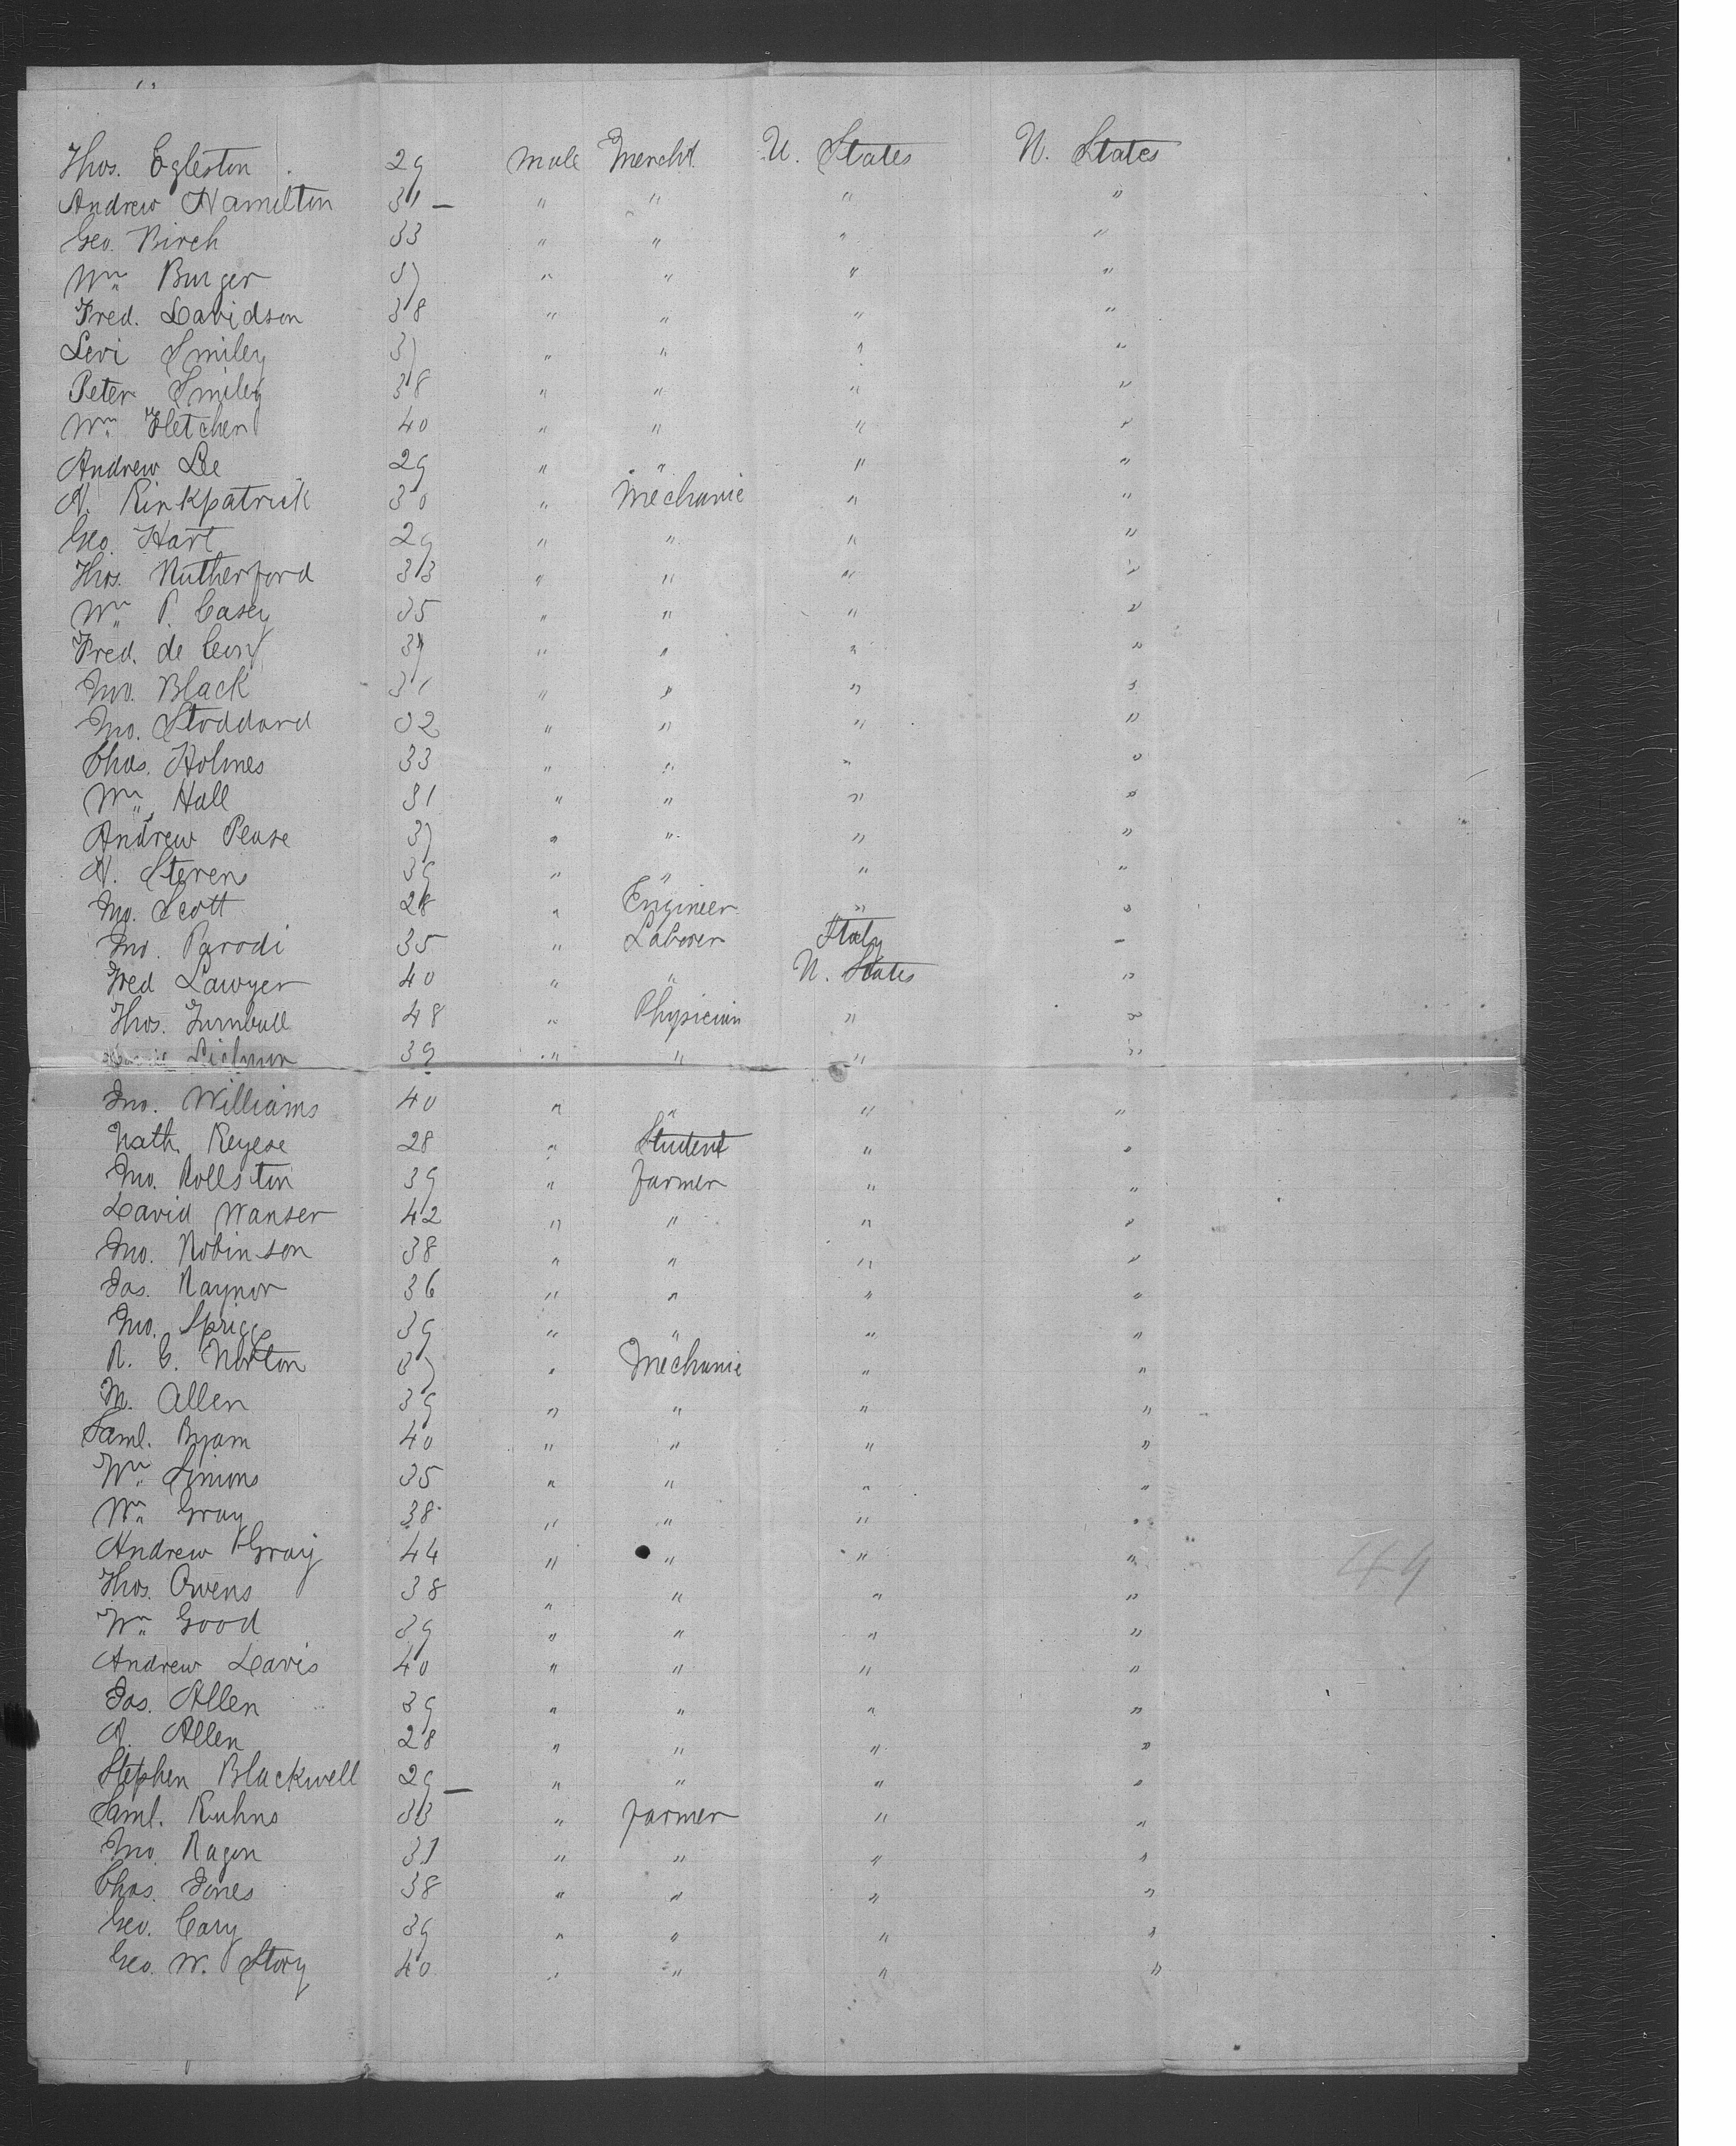 Thos. Egleston 29 Male Mercht. U. States U. States
Andrew Hamilton 31 " " " "
Geo. Birch 33 " " " "
Wm Burger 37 " " " "
Fred. Davidson 38 " " " "
Levi Smiley 37 " " " "
Peter Smiley 38 " " " "
Wm Fletcher 40 " " " "
Andrew Lee 29 " " " "
A. Kirkpatrick 30 " Mechanic " "
Geo. Hart 29 " " " "
Thos. Rutherford 33 " " " "
Wm P. Casey 35 " " " "
Fred. de Cony 39 " " " "
Jno. Black 31 " " " "
Jno. Stoddard 32 " " " "
Chas. Holmes 33 " " " "
Wm Hall 31 " " " "
Andrew Pease 37 " " " "
A. Stevens 39 " " " "
Jno. Scott 28 " Engineer " "
Jno. Parodi 35 " Laborer Italy "
Fred Lawyer 40 " " U. States "
Thos. Turnbull 48 " Physician " "
39 " " " "
Jno. Williams 40 " " " "
Nath. Keyese 28 " Student " "
Jno. Rollston 39 " Farmer " "
David Wanser 42 " " " "
Jno. Robinson 38 " " " "
Jas. Raynor 36 " " " "
Jno. Sprigg 39 " " " "
R. C. Norton 37 " Mechanic " "
M. Allen 39 " " " "
Saml. Byam 40 " " " "
Wm Simons 35 " " " "
Wm Gray 38 " " " "
Andrew Gray 44 " " " "
Thos. Owens 38 " " " "
Wm Good 39 " " " "
Andrew Davis 40 " " " "
Jas. Allen 39 " " " "
A. Allen 28 " " " "
Stephen Blackwell 29 " " " "
Saml. Kuhns 33 " Farmer " "
Jno. Ragon 31 " " " "
Chas. Jones 38 " " " "
Geo. Cary 39 " " " "
Geo. W. Story 40 " " " "
49